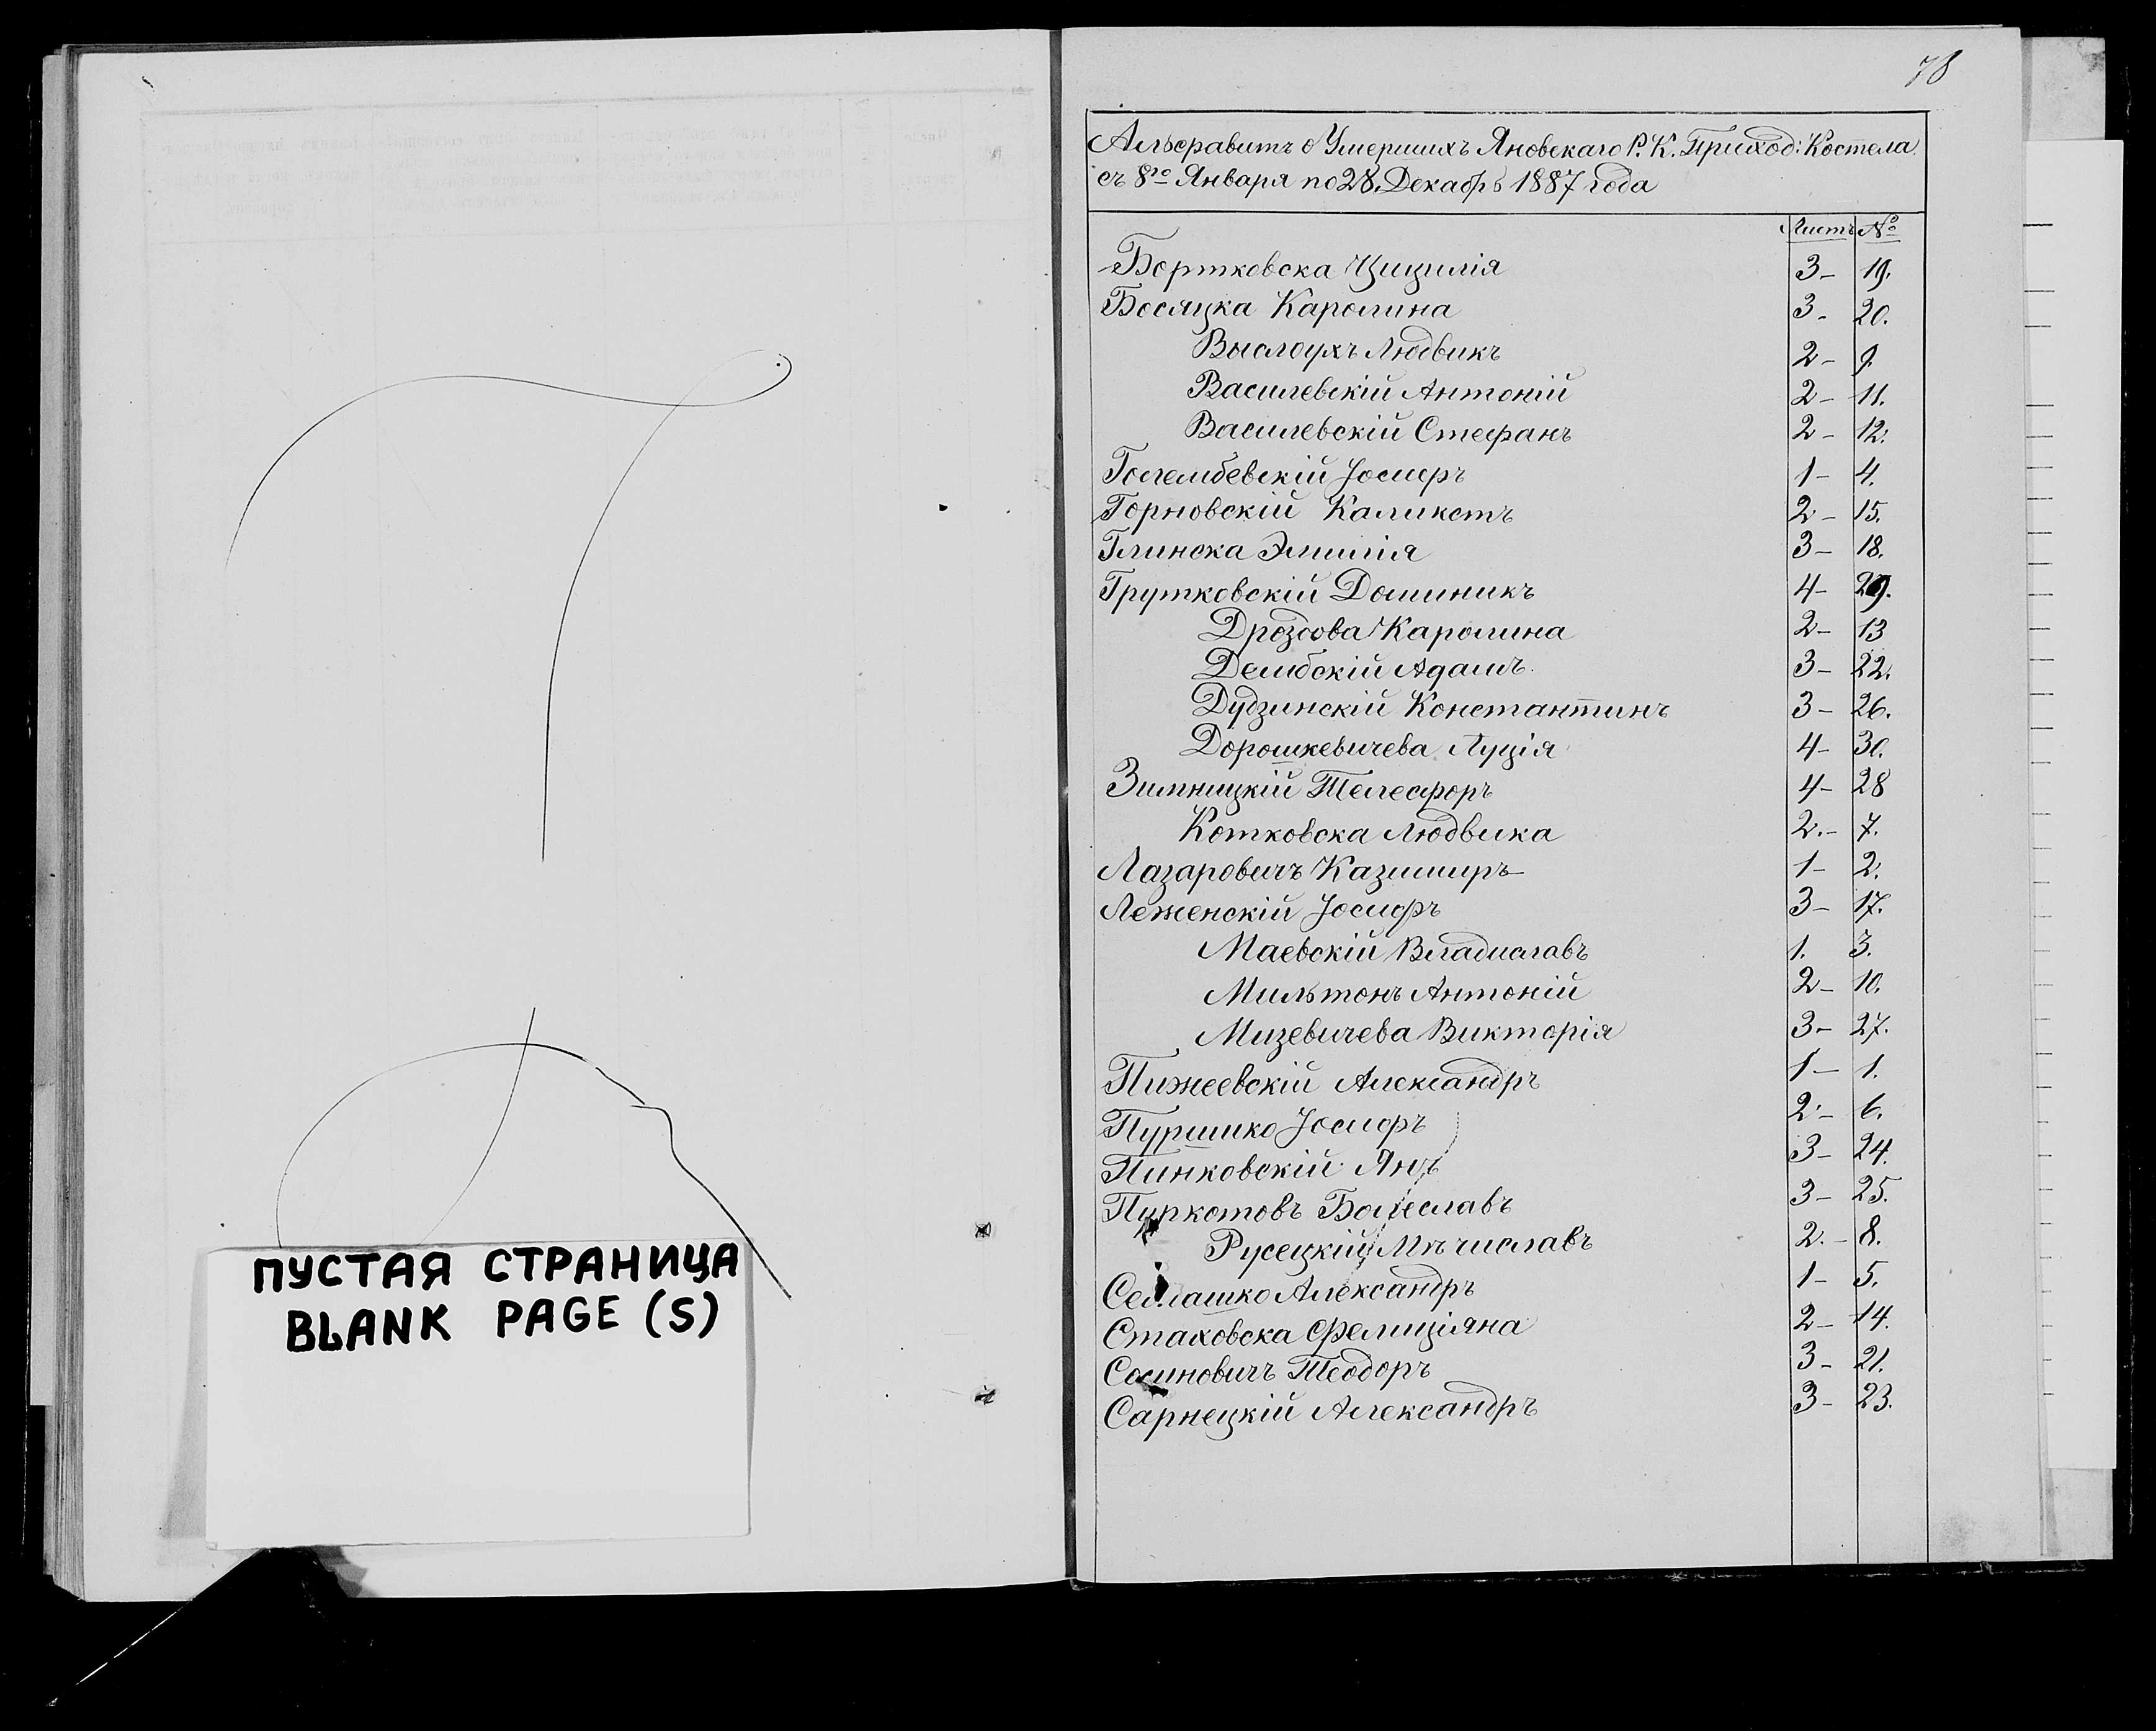 ПУСТАЯ СТРАНИЦА
BLANK PAGE (S)
78
Альфавитъ о Умершихъ Яновскаго Р. К. Приход: Костела
съ 8го Января по 28 Декабрь 1887 года
Листъ №
Бортковска Цицилія 3- 19.
Босяцка Каролина 3- 20.
Выслоухъ Людвикъ 2- 9
Василевскій Антоній 2- 11.
Василевскій Стефанъ 2- 12.
Голембевскій Іосифъ 1- 4.
Горновскій Каликстъ 2- 15.
Глинска Эмилія 3- 18.
Грутковскій Доминикъ 4- 29.
Дроздова Каролина 2- 13
Дембскій Адамъ 3- 22.
Дудзинскій Константинъ 3- 26.
Дорошкевичева Луція 4- 30.
Зимницкій Телесфоръ 4- 28
Котковска Людвика 2.- 7.
Лазаровичъ Казимиръ 1- 2.
Леженскій Іосифъ 3- 17.
Маевскій Владиславъ 1. 3.
Мильтонъ Антоній 2- 10.
Мизевичева Викторія 3- 27.
Пижеевскій Александръ 1- 1.
Пуршко Іосифъ 2- 6.
Пинковскій Янъ 3- 24.
Пуркотовъ Болеславъ 3- 25.
Русецкій Мѣчиславъ 2.- 8.
Селлашко Александръ 1- 5.
Стаховска Фелиціяна 2- 14.
Сосиновичъ Теодоръ 3- 21.
Сарнецкій Александръ 3- 23.